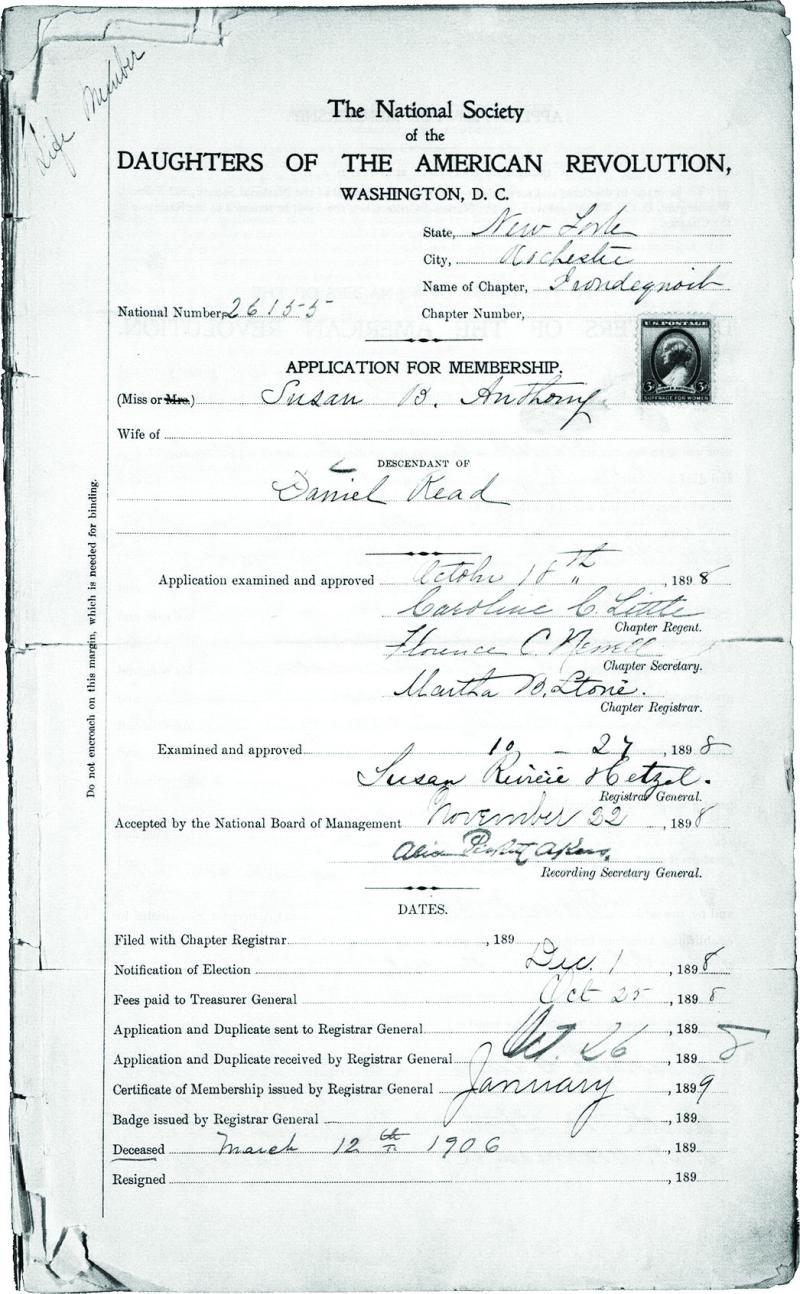 Life Member
The National Society
of the
DAUGHTERS OF THE AMERICAN REVOLUTION,
WASHINGTON, D. C.
State, New York
City, Rochester
Name of Chapter, Irondequoit
National Number, 26155 Chapter Number,
U.S. POSTAGE
3¢ 3¢
SUFFRAGE FOR WOMEN
APPLICATION FOR MEMBERSHIP.
(Miss or Mrs.) Susan B. Anthony.
Wife of
DESCENDANT OF
Daniel Read
Do not encroach on this margin, which is needed for binding.
Application examined and approved October 18th, 1898
Caroline C. Little
Chapter Regent.
Florence C.
Chapter Secretary.
Martha B. Stone.
Chapter Registrar.
Examined and approved 10 - 27, 1898
Susan Riviere Hetzel.
Registrar General.
Accepted by the National Board of Management November 22, 1898
Alice Akers.
Recording Secretary General.
DATES.
Filed with Chapter Registrar, 189
Notification of Election Dec. 1, 1898
Fees paid to Treasurer General Oct 25, 1898
Application and Duplicate sent to Registrar General, 189
Application and Duplicate received by Registrar General Oct. 26, 1898
Certificate of Membership issued by Registrar General January, 1899
Badge issued by Registrar General, 189
Deceased March 12th 1906, 189
Resigned, 189